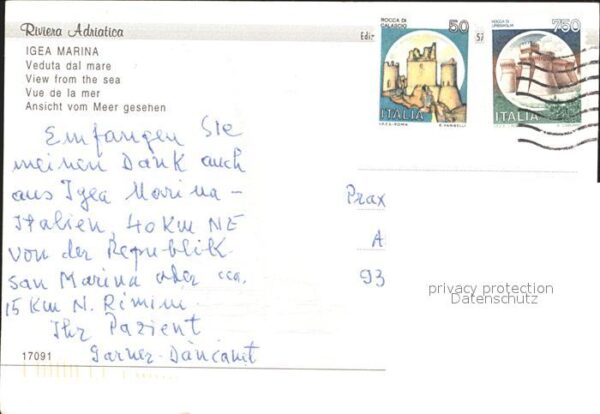 Riviera Adriatica
IGEA MARINA
Veduta dal mare
View from the sea
Vue de la mer
Ansicht vom Meer gesehen
Ediz
57
ROCCA DI
CALASCIO
50
ITALIA
I.P.Z.S. - ROMA
E. VANGELLI
ROCCA DI
URBISAGLIA
750
ITALIA
Empfangen Sie
meinen Dank auch
aus Igea Marina -
Italien, 40 Km NE
von der Republik
San Marina oder cca.
15 Km N. Rimini.
Ihr Pazient
Prax
A
93
privacy protection
Datenschutz
17091